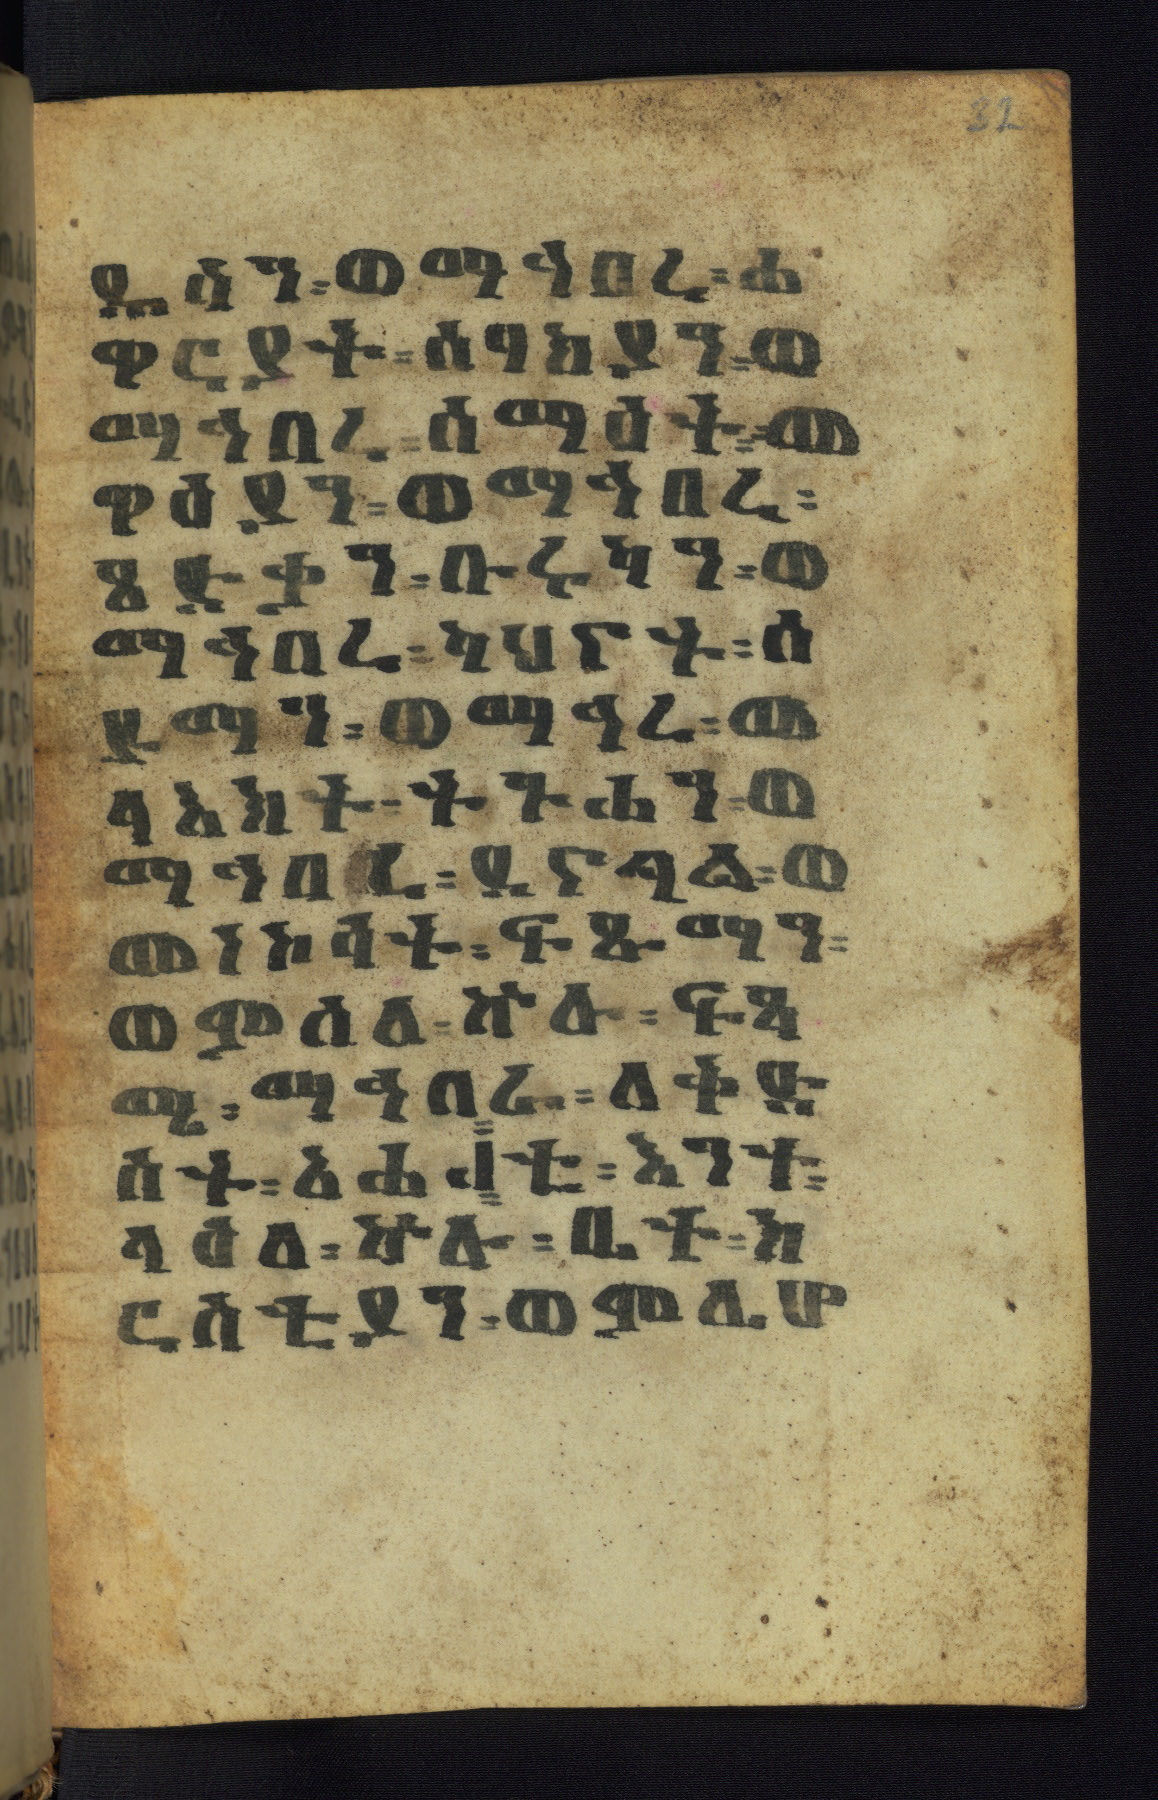 ዱሳን፡ወማኅበረ፡ሐ
ዋርያት፡ሰባክያን፡ወ
ማኅበረ፡ሰማዕት፡መ
ዋዕያን፡ወማኅበረ፡
ጻድቃን፡ቡሩካን፡ወ
ማኅበረ፡ካህናት፡ሰ
ዩማን፡ወማኅረ፡መ
ላእክት፡ትጉሐን፡ወ
ማኅበረ፡ደናግል፡ወ
መነኮሳት፡ፍጹማን፡
ወምስለ፡ኵሉ፡ፍጻ
ሜ፡ማኅበራ፡ለቅድ
ስት፡አሐቲ፡እንተ፡
ላዕለ፡ኵሉ፡ቤተ፡ክ
ርስቲያን፡ወምሌሆ